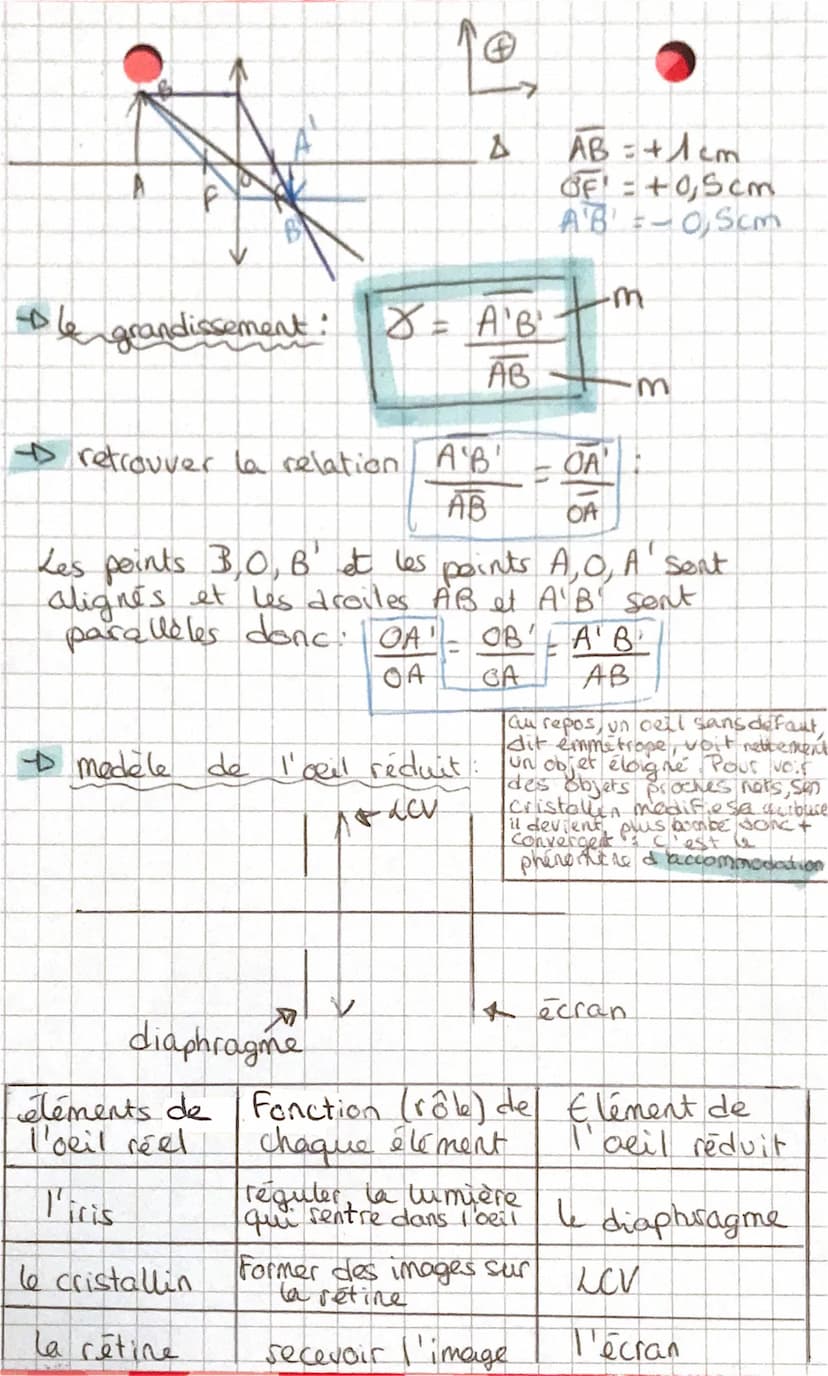 B
A
F
O
A'
B'
⊕
Δ
AB = +1cm
OF' = +0,5cm
A'B' = -0,5cm
→ le grandissement :
γ = A'B' / AB
m
m
→ retrouver la relation A'B' / AB = OA' / OA :
Les points B,O,B' et les points A,O,A' sont
alignés et les droites AB et A'B' sont
parallèles donc : OA' / OA = OB' / OA = A'B' / AB
au repos, un oeil sans défaut,
dit emmétrope, voit nettement
un objet éloigné. Pour voir
des objets proches nets, son
cristallin modifie sa
il devient plus bombé donc +
convergent : c'est le
phénomène d'accommodation
→ modèle de l'oeil réduit :
← LCV
← écran
diaphragme
éléments de
l'oeil réel
Fonction (rôle) de
chaque élément
Elément de
l'oeil réduit
l'iris
réguler la lumière
qui rentre dans l'oeil
le diaphragme
le cristallin
Former des images sur
la rétine
LCV
la rétine
recevoir l'image
l'écran